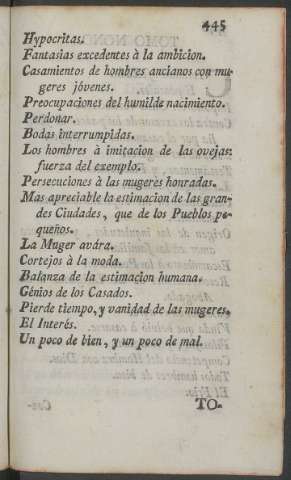 445
Hypocritas.
Fantasias excedentes à la ambicion.
Casamientos de hombres ancianos con mu-
geres jóvenes.
Preocupaciones del humilde nacimiento.
Perdonar.
Bodas interrumpidas.
Los hombres à imitacion de las ovejas:
fuerza del exemplo.
Persecuciones à las mugeres honradas.
Mas apreciable la estimacion de las gran-
des Ciudades, que de los Pueblos pe-
queños.
La Muger avára.
Cortejos à la moda.
Balanza de la estimacion humana.
Génios de los Casados.
Pierde tiempo, y vanidad de las mugeres.
El Interés.
Un poco de bien, y un poco de mal.
TO-